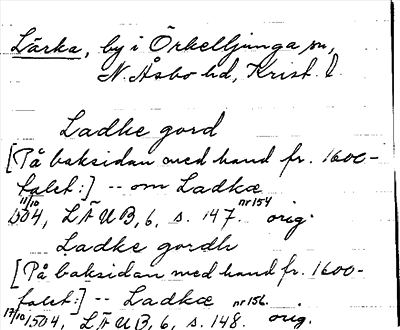 Lärka, by i Örkelljunga sn,
N. Åsbo hd, Krist. l.
Ladke gord
[På baksidan med hand fr. 1600-
talet:] -- om Ladkæ
11/10 1504, LÄUB, 6, s. 147. nr 154 orig.
Ladke gordh
[På baksidan med hand fr. 1600-
talet:] -- Ladkæ nr 156.
17/10 1504, LÄUB, 6, s. 148. orig.